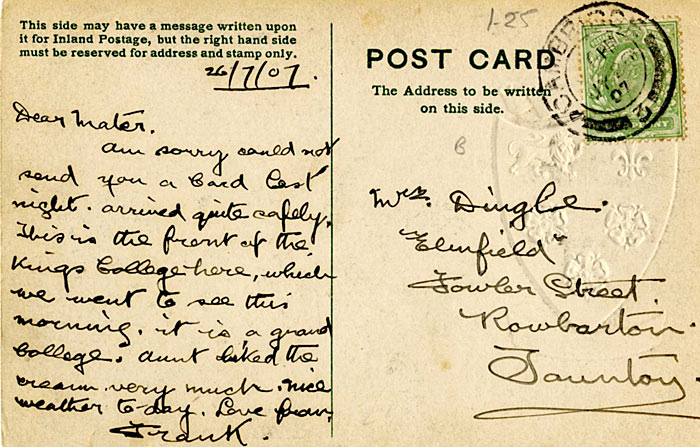 This side may have a message written upon
it for Inland Postage, but the right hand side
must be reserved for address and stamp only.
26/7/07.
Dear Mater.
am sorry could not
send you a Card Last
night. arrived quite safely.
This is the front of the
Kings College here, which
we went to see this
morning. it is a grand
College. Aunt liked the
cream very much. nice
weather to-day. Love from
Frank.
1-25
POST CARD
The Address to be written
on this side.
B
Mrs. Dingle.
Elmfield
Fowler Street.
Rowbarton.
Taunton
07